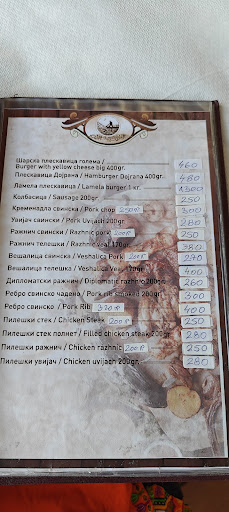 Шарска плескавица голема /
Burger with yellow cheese big 400gr. 460
Плескавица Дојрана / Hamburger Dojrana 400gr. 480
Ламела плескавица / Lamela burger 1 кг. 1300
Колбасица / Sausage 200gr. 250
Кременадла свинска / Pork chop 250gr 300
Увијач свински / Pork Uvijach 200gr. 280
Ражнич свински / Razhnic pork 200gr 250
Ражнич телешки / Razhnic veal 170gr. 380
Вешалица свинска / Veshalica Pork 200gr 270
Вешалица телешка / Veshalica Veal 170gr. 400
Дипломатски ражнич / Diplomatic razhnic 200gr. 260
Ребро свинско чадено / Pork rib smoked 200gr. 300
Ребро свинско / Pork Rib 400
Пилешки стек / Chicken Steak 200gr 250
Пилешки стек полнет / Filled chicken steak 200gr. 280
Пилешки ражнич / Chicken razhnic 200gr 250
Пилешки увијач / Chicken uvijach 200gr. 280